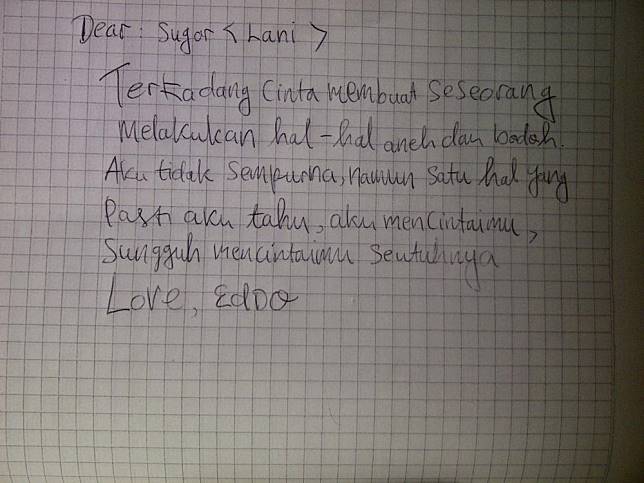 Dear: Sugar < Lani >
Terkadang Cinta membuat Seseorang
Melakukan hal-hal aneh dan bodoh.
Aku tidak Sempurna, namun Satu hal yang
Pasti aku tahu, aku menCintaimu,
Sungguh mencintaimu Seutuhnya
Love, Edoo